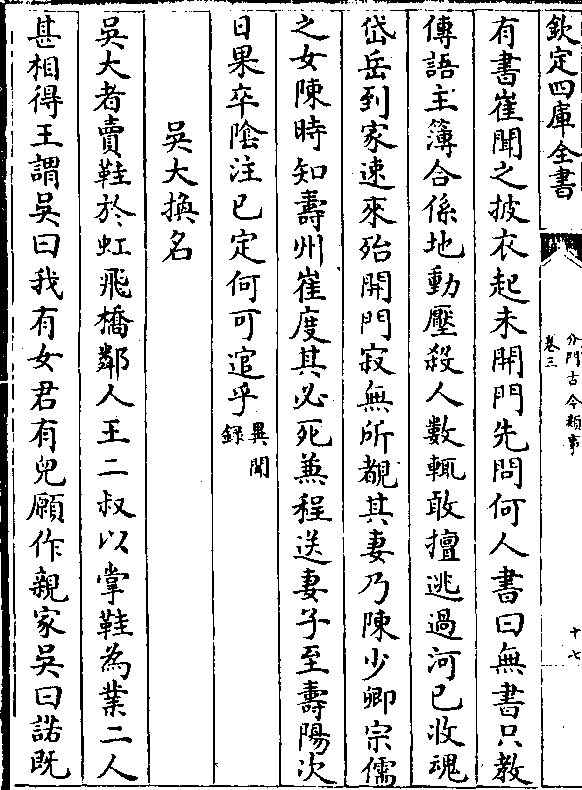 欽定四庫全書
分門古今類事
卷三
十七
有書崔聞之披衣起未開門先問何人書曰無書只教
傳語主簿合係地動壓殺人數輒敢擅逃過河已收魂
岱岳到家速來殆開門寂無所覩其妻乃陳少卿宗儒
之女陳時知壽州崔度其必死兼程送妻子至壽陽次
日果卒陰注已定何可逭乎異聞錄
吳大換名
吳大者賣鞋於虹飛橋鄰人王二叔以掌鞋為業二人
甚相得王謂吳曰我有女君有兒願作親家吳曰諾既